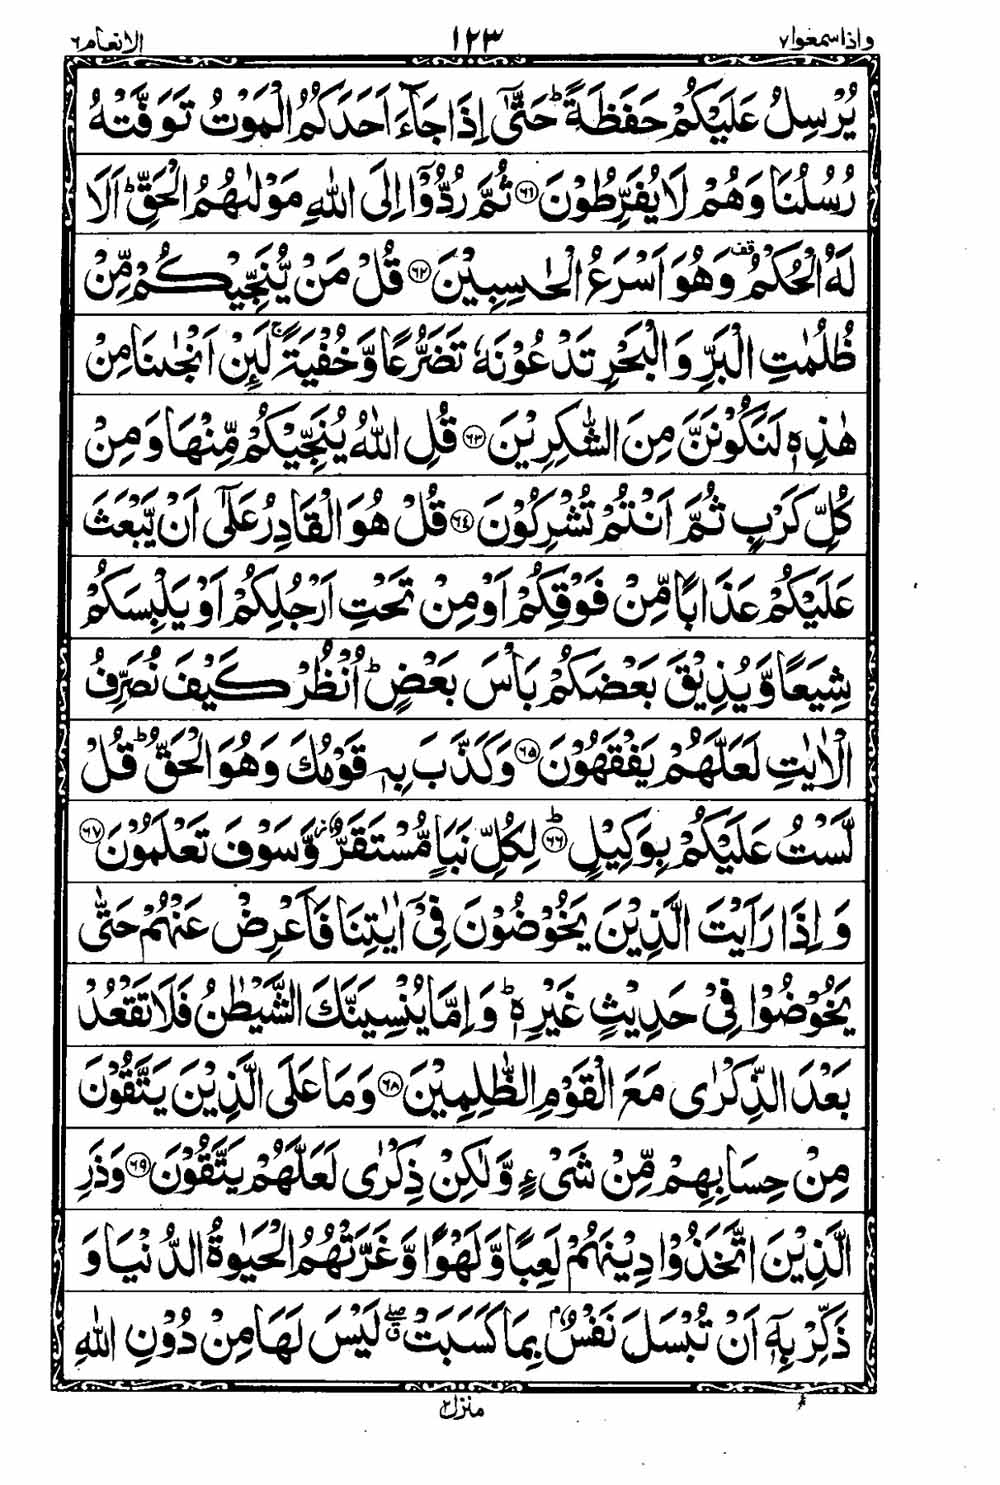 واذاسمعوا۷ ۱۲۳ الانعام٦
يُرْسِلُ عَلَيْكُمْ حَفَظَةً ؕ حَتّٰۤى اِذَا جَآءَ اَحَدَكُمُ الْمَوْتُ تَوَفَّتْهُ
رُسُلُنَا وَهُمْ لَا يُفَرِّطُوْنَ ﴿٦١﴾ ثُمَّ رُدُّوْۤا اِلَى اللّٰهِ مَوْلٰىهُمُ الْحَقِّ ؕ اَلَا
لَهُ الْحُكْمُ قف وَهُوَ اَسْرَعُ الْحٰسِبِيْنَ ﴿٦٢﴾ قُلْ مَنْ يُّنَجِّيْكُمْ مِّنْ
ظُلُمٰتِ الْبَرِّ وَالْبَحْرِ تَدْعُوْنَهٗ تَضَرُّعًا وَّخُفْيَةً ۚ لَئِنْ اَنْجٰىنَا مِنْ
هٰذِهٖ لَنَكُوْنَنَّ مِنَ الشّٰكِرِيْنَ ﴿٦٣﴾ قُلِ اللّٰهُ يُنَجِّيْكُمْ مِّنْهَا وَمِنْ
كُلِّ كَرْبٍ ثُمَّ اَنْتُمْ تُشْرِكُوْنَ ﴿٦٤﴾ قُلْ هُوَ الْقَادِرُ عَلٰۤى اَنْ يَّبْعَثَ
عَلَيْكُمْ عَذَابًا مِّنْ فَوْقِكُمْ اَوْ مِنْ تَحْتِ اَرْجُلِكُمْ اَوْ يَلْبِسَكُمْ
شِيَعًا وَّيُذِيْقَ بَعْضَكُمْ بَاْسَ بَعْضٍ ؕ اُنْظُرْ كَيْفَ نُصَرِّفُ
الْاٰيٰتِ لَعَلَّهُمْ يَفْقَهُوْنَ ﴿٦٥﴾ وَكَذَّبَ بِهٖ قَوْمُكَ وَهُوَ الْحَقُّ ؕ قُلْ
لَّسْتُ عَلَيْكُمْ بِوَكِيْلٍ ﴿٦٦﴾ ؕ لِكُلِّ نَبَاٍ مُّسْتَقَرٌّ ز وَّسَوْفَ تَعْلَمُوْنَ ﴿٦٧﴾
وَاِذَا رَاَيْتَ الَّذِيْنَ يَخُوْضُوْنَ فِىْۤ اٰيٰتِنَا فَاَعْرِضْ عَنْهُمْ حَتّٰى
يَخُوْضُوْا فِىْ حَدِيْثٍ غَيْرِهٖ ؕ وَاِمَّا يُنْسِيَنَّكَ الشَّيْطٰنُ فَلَا تَقْعُدْ
بَعْدَ الذِّكْرٰى مَعَ الْقَوْمِ الظّٰلِمِيْنَ ﴿٦٨﴾ وَمَا عَلَى الَّذِيْنَ يَتَّقُوْنَ
مِنْ حِسَابِهِمْ مِّنْ شَىْءٍ وَّلٰكِنْ ذِكْرٰى لَعَلَّهُمْ يَتَّقُوْنَ ﴿٦٩﴾ وَذَرِ
الَّذِيْنَ اتَّخَذُوْا دِيْنَهُمْ لَعِبًا وَّلَهْوًا وَّغَرَّتْهُمُ الْحَيٰوةُ الدُّنْيَا وَ
ذَكِّرْ بِهٖۤ اَنْ تُبْسَلَ نَفْسٌۢ بِمَا كَسَبَتْ ۖق لَيْسَ لَهَا مِنْ دُوْنِ اللّٰهِ
منزل۲